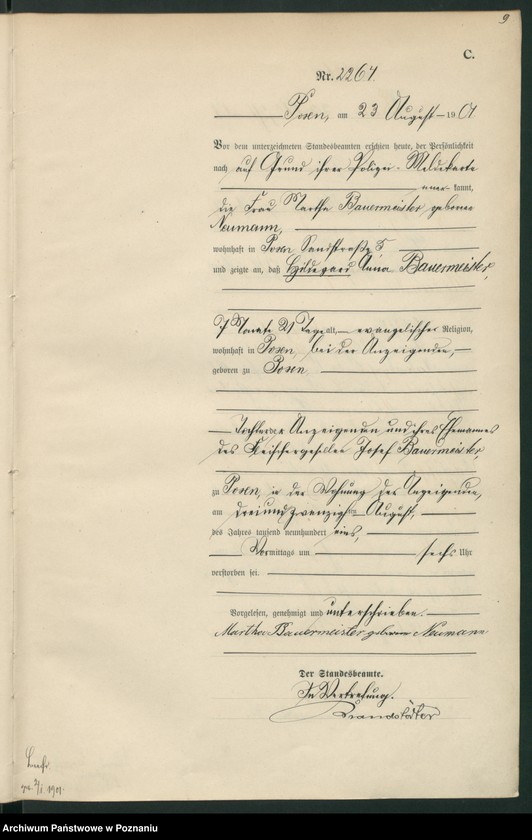 9
C.
Nr. 2264.
Posen, am 23 August 1901
Vor dem unterzeichneten Standesbeamten erschien heute, der Persönlichkeit
nach auf Grund ihrer Polizei-Meldekarte
kannt,
die Frau Martha Bauermeister, geborene
Neumann,
wohnhaft in Posen Sandstraße 5
und zeigte an, daß Hildegard Anna Bauermeister,
7 Monate 21 Tage alt, evangelischer Religion,
wohnhaft in Posen, bei der Anzeigenden,
geboren zu Posen
Tochter der Anzeigenden und ihres Ehemannes
des Fleischergesellen Josef Bauermeister,
zu Posen, in der Wohnung der Anzeigenden,
am dreiundzwanzigsten August,
des Jahres tausend neunhundert eins,
Vormittags um sechs Uhr
verstorben sei.
Vorgelesen, genehmigt und unterschrieben.
Martha Bauermeister geborene Neumann
Der Standesbeamte.
In Vertretung.
Brandstädter
1901.
Archiwum Państwowe w Poznaniu